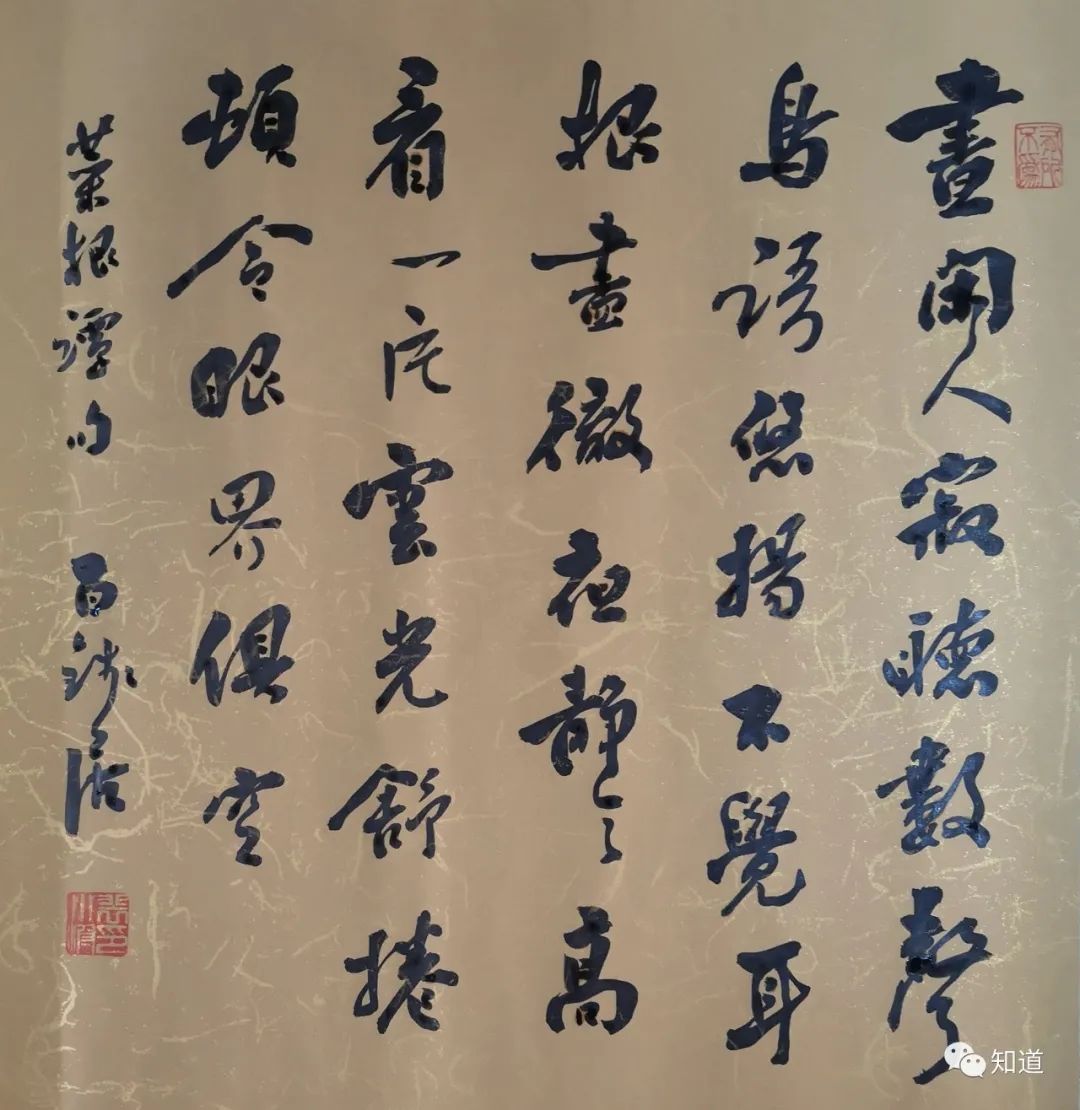 有所不為
晝閑人寂聽數聲
鳥語悠揚不覺耳
根盡徹夜靜天高
看一片雲光舒捲
頓令眼界俱空
菜根譚句
知道